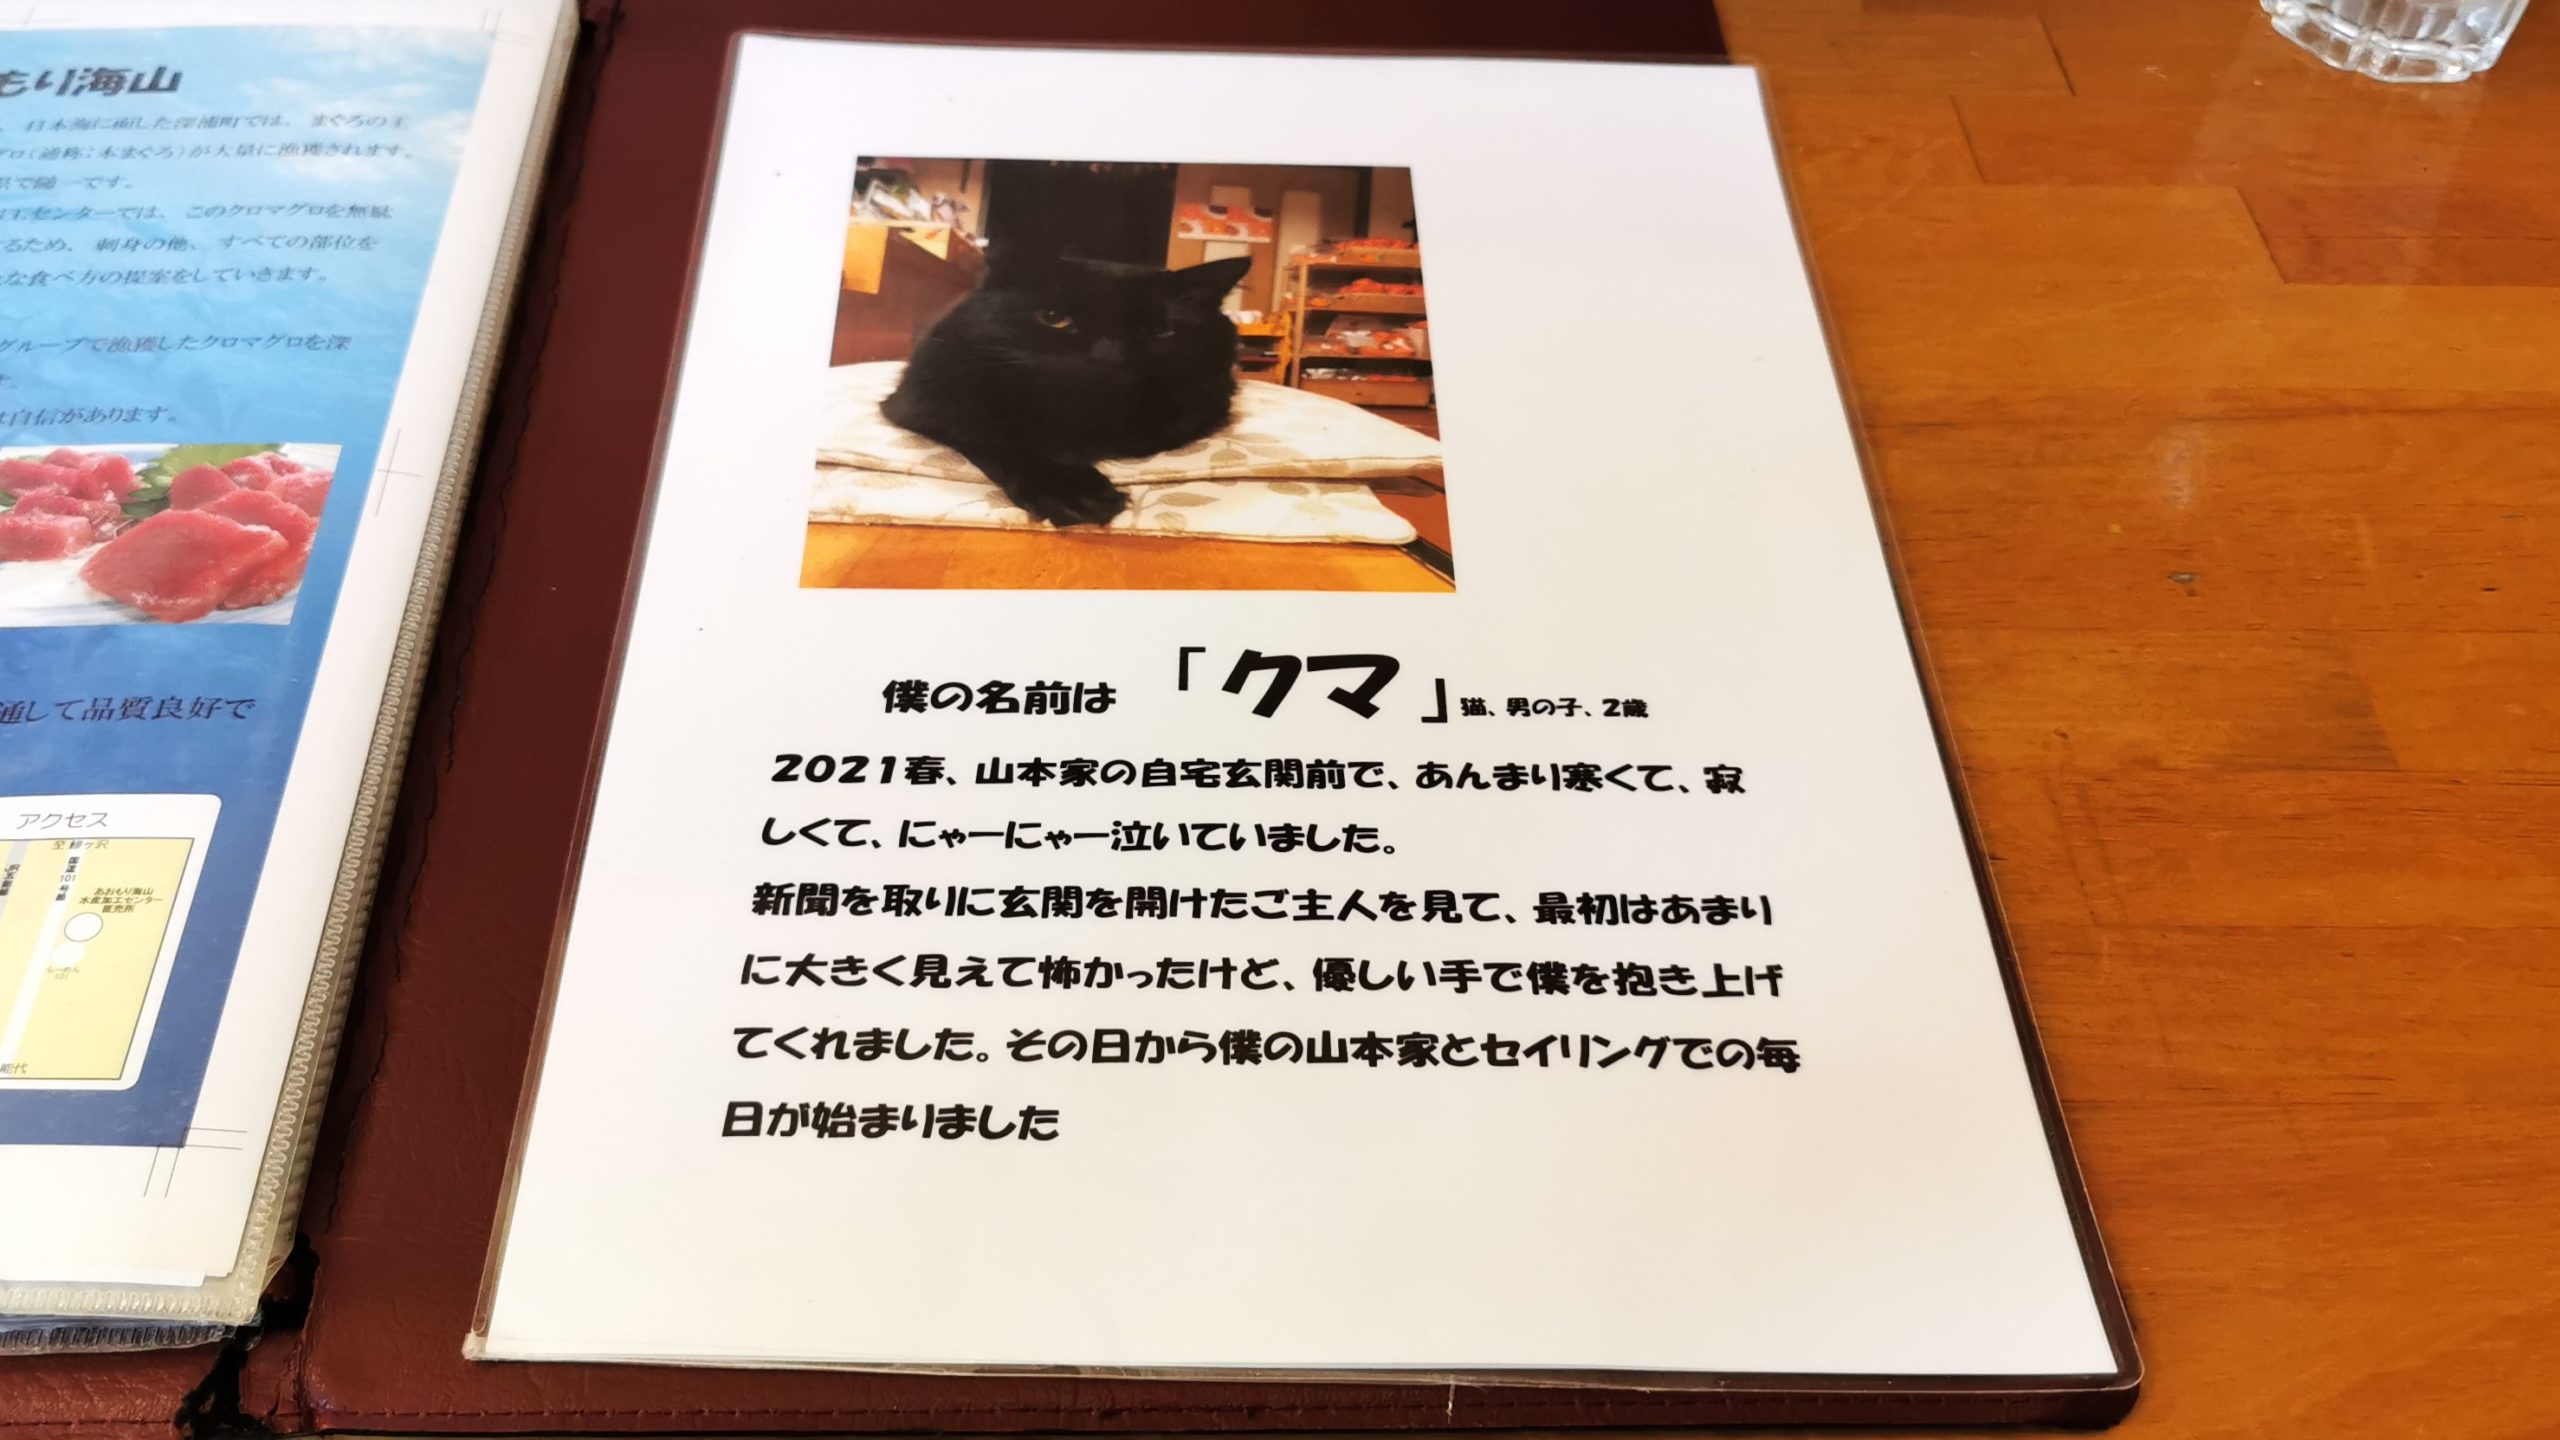 もり海山
日本海に面した深浦町では、まぐろの王
グロ(通称:本まぐろ)が大量に漁獲されます。
で随一です。
工センターでは、このクロマグロを無駄
るため、刺身の他、すべての部位を
な食べ方の提案をしていきます。
グループで漁獲したクロマグロを深
す。
は自信があります。
通して品質良好で
アクセス
至 鰺ヶ沢
国道101号線
あおもり海山
水産加工センター
直売所
らーめん
101
能代
僕の名前は 「クマ」猫、男の子、2歳
2021春、山本家の自宅玄関前で、あんまり寒くて、寂
しくて、にゃーにゃー泣いていました。
新聞を取りに玄関を開けたご主人を見て、最初はあまり
に大きく見えて怖かったけど、優しい手で僕を抱き上げ
てくれました。その日から僕の山本家とセイリングでの毎
日が始まりました